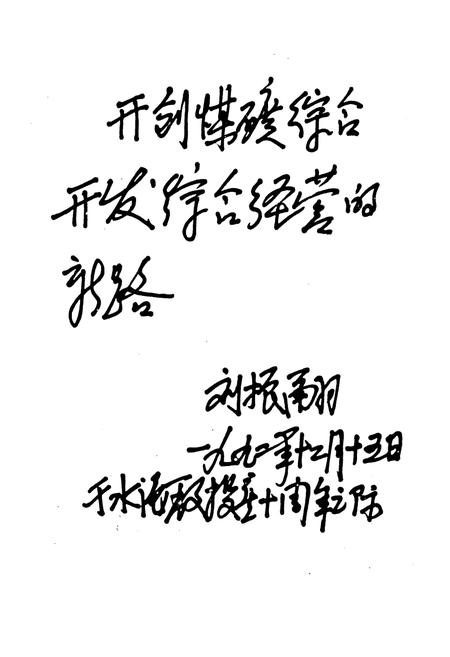 开创煤矿综合
开发综合经营的
新路
刘振羽
一九九二年十二月十五日
于水泥段投产十周年之际